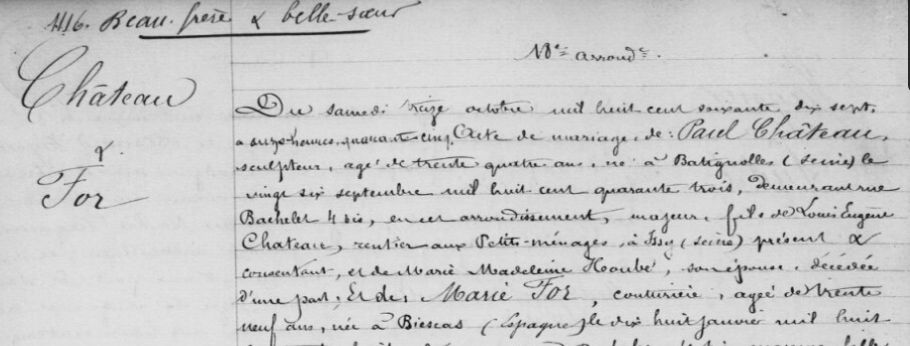 1116. Beau-frère & belle-sœur
18e arrondt.
Château
&
For
Du samedi treize octobre mil huit cent soixante dix sept,
à onze heures quarante-cinq. Acte de mariage, de: Paul Château,
sculpteur, agé de trente quatre ans, né à Batignolles (seine) le
vingt six septembre mil huit cent quarante trois, demeurant rue
Bachelet 4 bis, en cet arrondissement, majeur, fils de Louis Eugène
Chateau, rentier aux Petits-ménages, à Issy (seine) présent &
consentant, et de Marie Madeleine Houbé, son épouse, décédée
d'une part; Et de, Marie For, couturière, agée de trente
neuf ans, née à Biescas (Espagne) le dix huit janvier mil huit